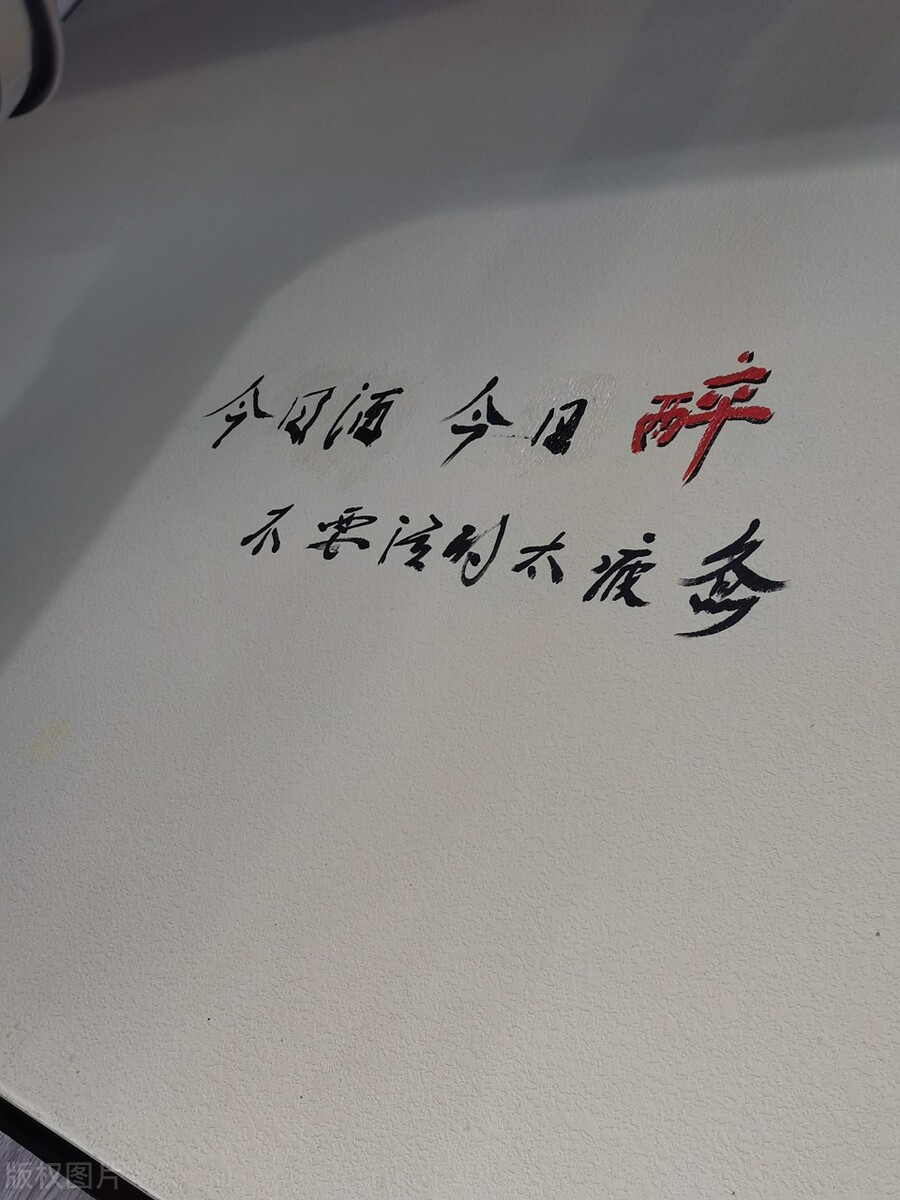 今日酒 今日醉
不要活的太疲惫
版权图片